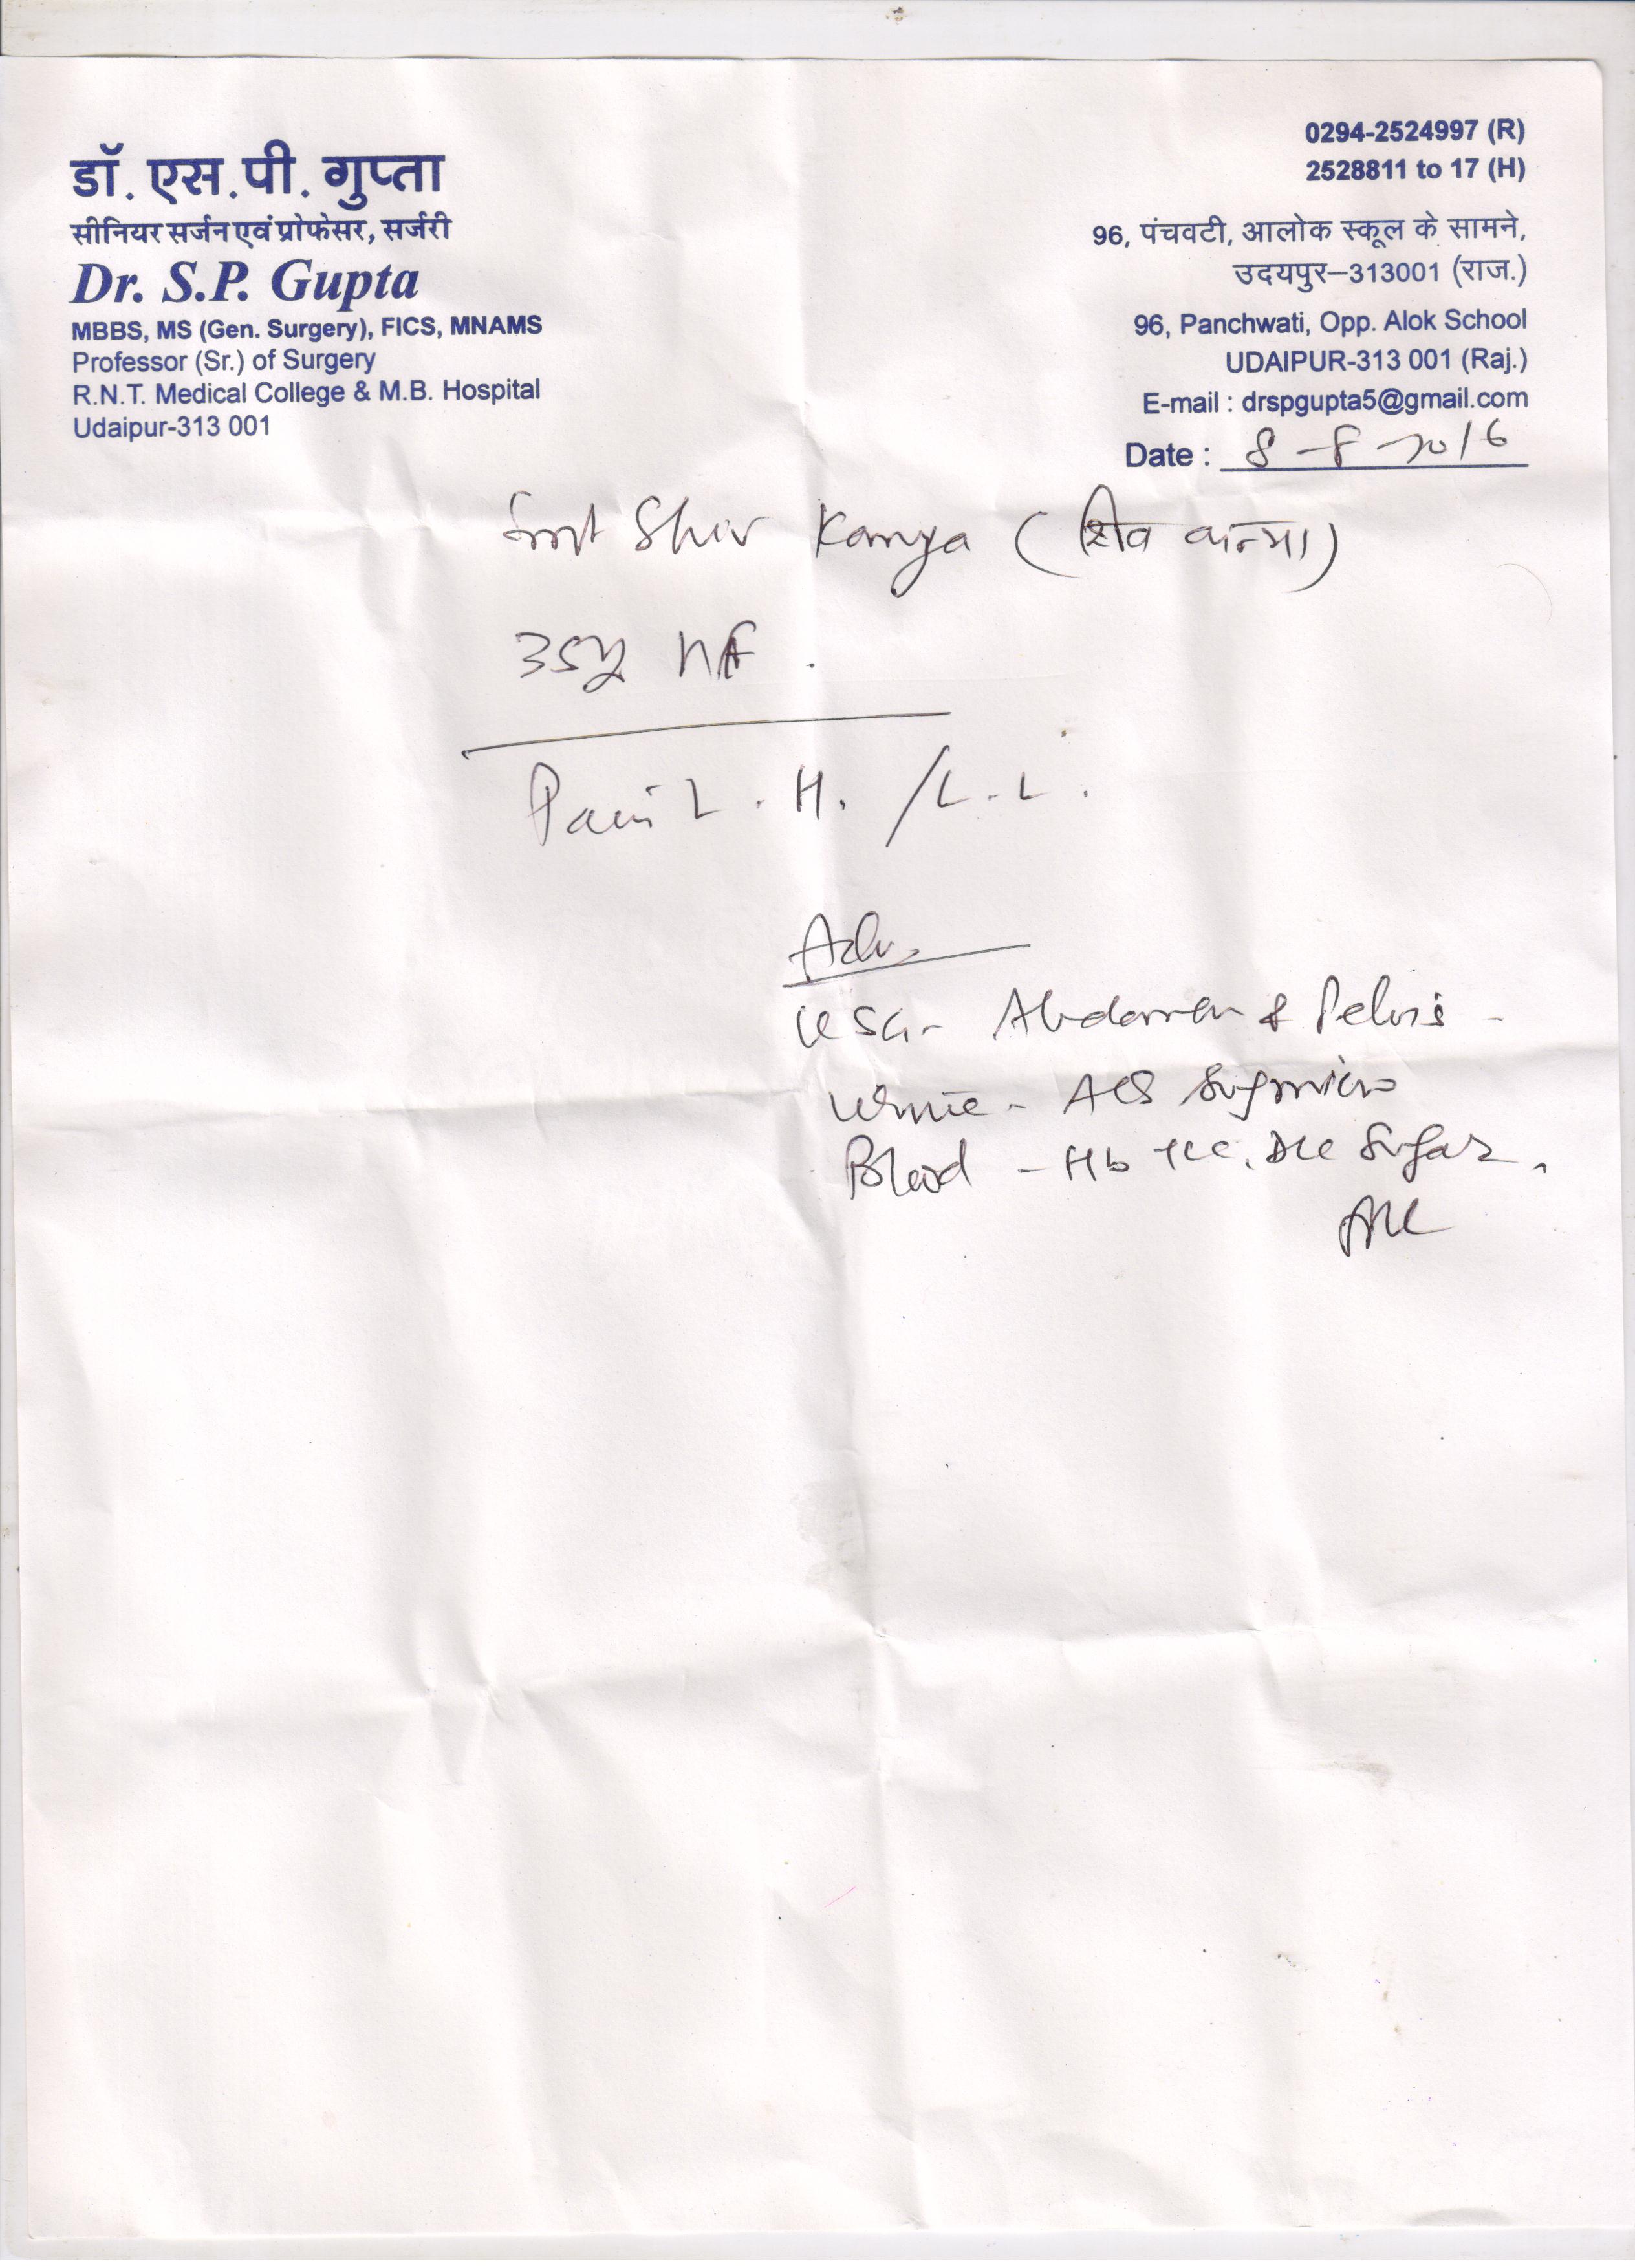 डॉ. एस.पी. गुप्ता
सीनियर सर्जन एवं प्रोफेसर, सर्जरी
Dr. S.P. Gupta
MBBS, MS (Gen. Surgery), FICS, MNAMS
Professor (Sr.) of Surgery
R.N.T. Medical College & M.B. Hospital
Udaipur-313 001
0294-2524997 (R)
2528811 to 17 (H)
96, पंचवटी, आलोक स्कूल के सामने,
उदयपुर–313001 (राज.)
96, Panchwati, Opp. Alok School
UDAIPUR-313 001 (Raj.)
E-mail : drspgupta5@gmail.com
Date : 8-8-2016
Smt Shiv Kanya (शिव कन्या)
35y
Pain L.H. /L.L.
Adv.
USG - Abdomen & Pelvis -
Urine - Alb Sug micro
Blood - Hb TLC, DLC Sugar.